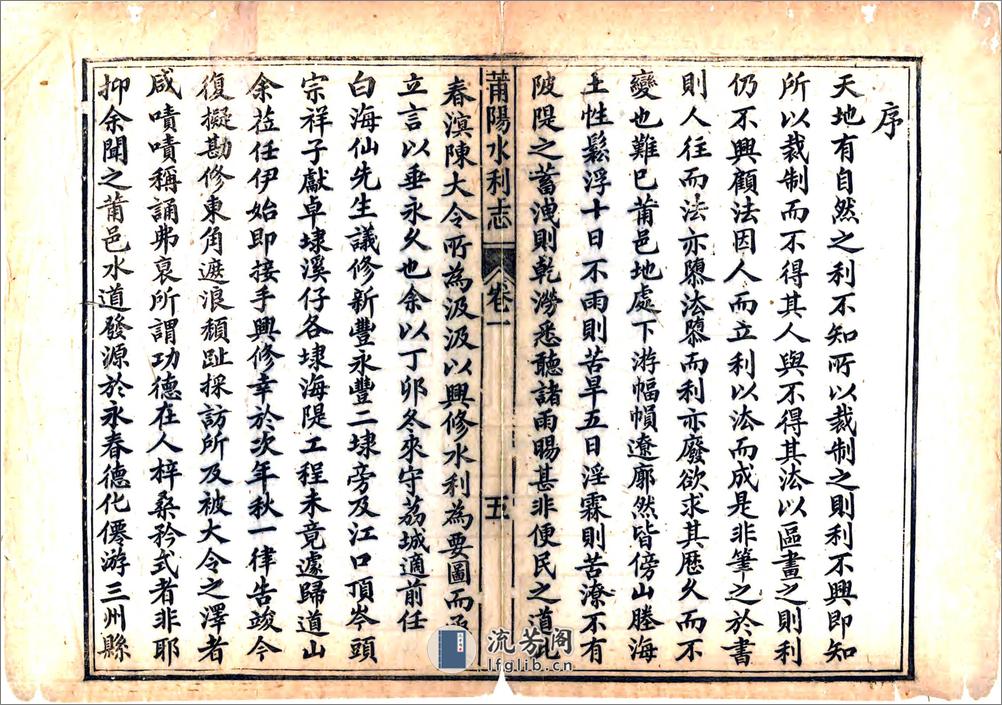 序
天地有自然之利不知所以裁制之則利不興即知
所以裁制而不得其人與不得其法以區畫之則利
仍不興顧法因人而立利以法而成是非筆之於書
則人往而法亦隳法隳而利亦廢欲求其歷久而不
變也難已莆邑地處下游幅幀遼廓然皆傍山塍海
土性鬆浮十日不雨則苦旱五日淫霖則苦潦不有
陂隄之蓄洩則乾澇悉聽諸雨暘甚非便民之道此
莆陽水利志 卷一 五
春滇陳大令所為汲汲以興修水利為要圖而
立言以垂永久也余以丁卯冬來守荔城適前任
白海仙先生議修新豐永豐二埭旁及江口頂岑頭
宗祥子獻卓埭溪仔各埭海隄工程未竟遽歸道山
余莅任伊始即接手興修幸於次年秋一律告竣今
復擬勘修東角遮浪頹趾採訪所及被大令之澤者
咸嘖嘖稱誦弗衰所謂功德在人梓桑矜式者非耶
抑余聞之莆邑水道發源於永春德化僊游三州縣
流芳阁
lfglib.cn